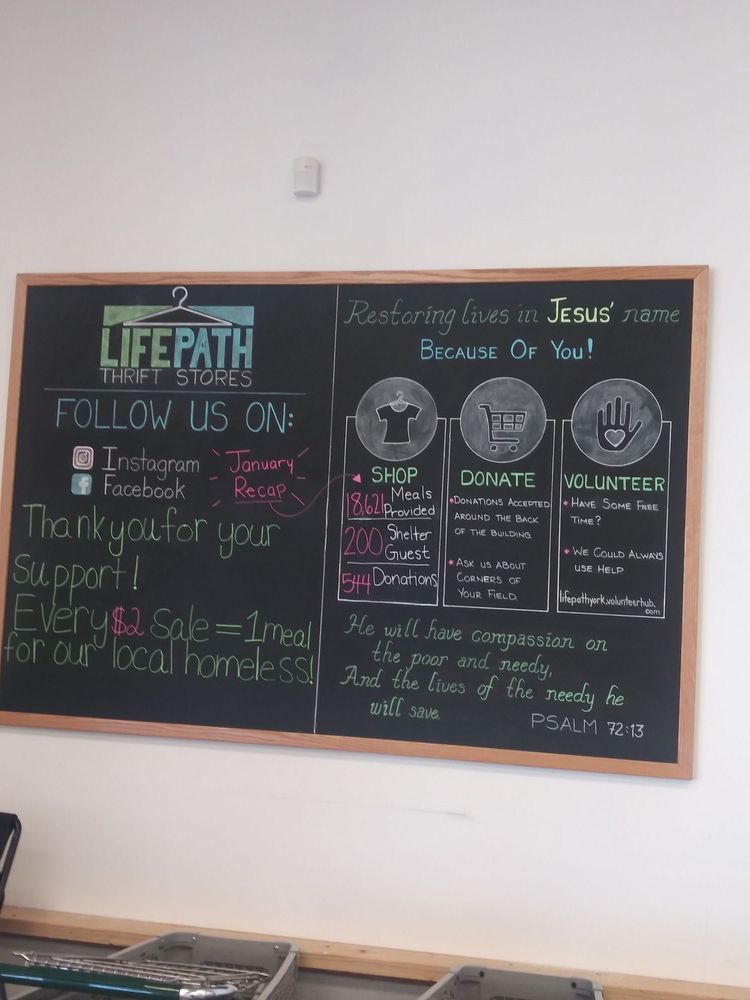 LIFEPATH
THRIFT STORES
FOLLOW US ON:
Instagram
Facebook
January
Recap
Thank you for your
Support!
Every $2 Sale = 1 meal
for our local homeless!
Restoring lives in JESUS' name
BECAUSE OF YOU!
SHOP
18,621 Meals
Provided
200 Shelter
Guest
544 Donations
DONATE
* DONATIONS ACCEPTED
AROUND THE BACK
OF THE BUILDING
* ASK US ABOUT
CORNERS OF
YOUR FIELD
VOLUNTEER
* HAVE SOME FREE
TIME?
* WE COULD ALWAYS
USE HELP
lifepathyork.volunteerhub.
com
He will have compassion on
the poor and needy,
And the lives of the needy he
will save.
PSALM 72:13